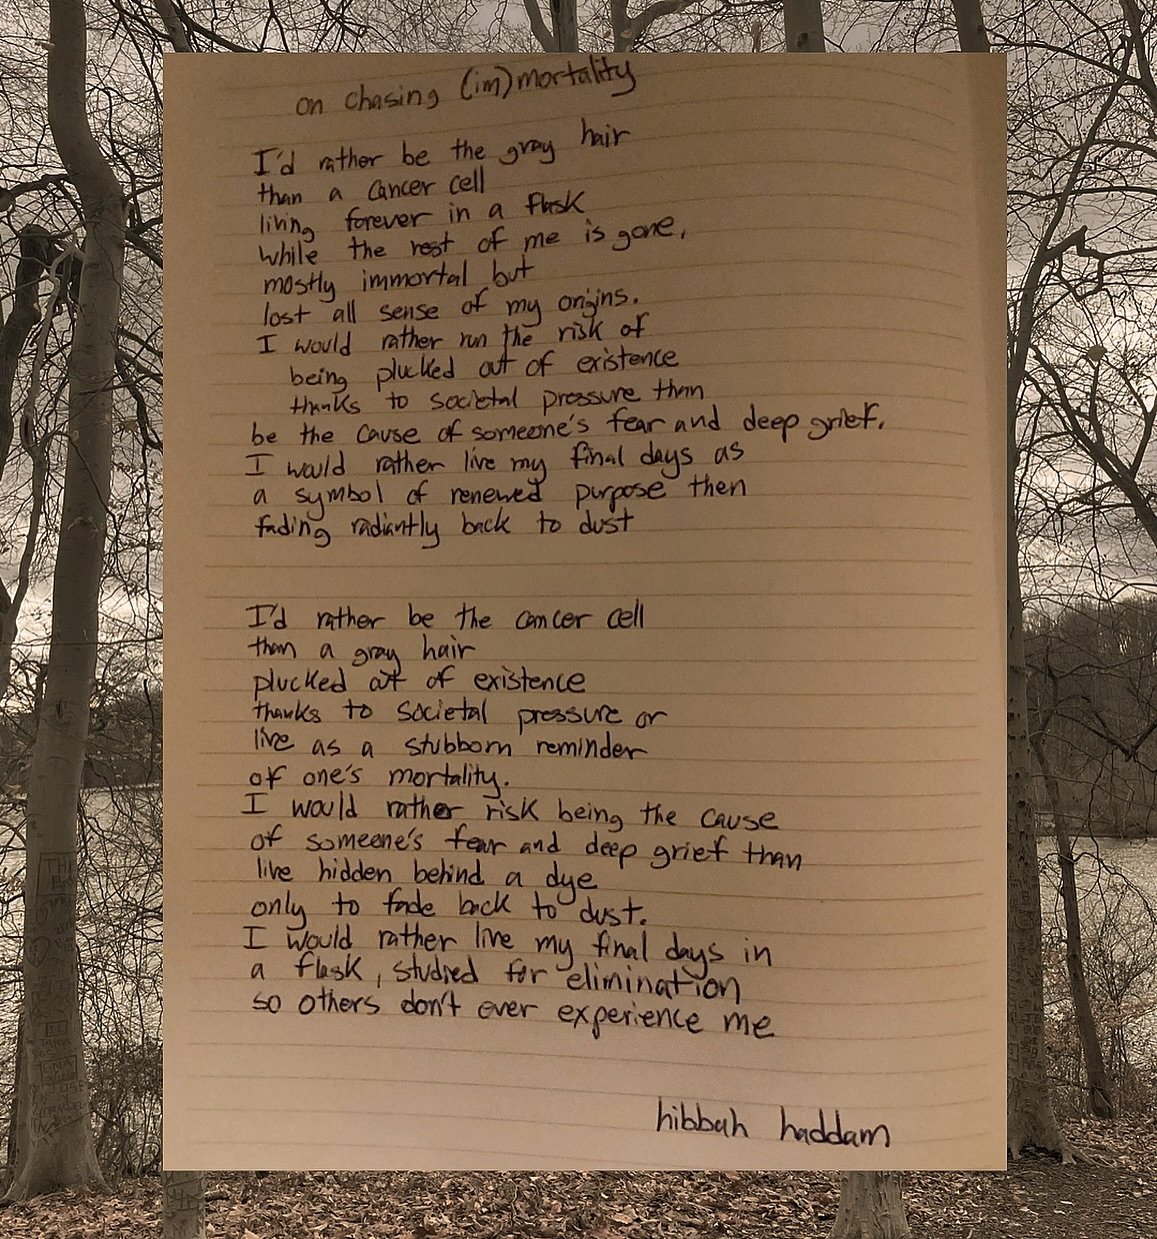 on chasing (im)mortality
I'd rather be the gray hair
than a cancer cell
living forever in a flask
while the rest of me is gone,
mostly immortal but
lost all sense of my origins.
I would rather run the risk of
being plucked out of existence
thanks to societal pressure than
be the cause of someone's fear and deep grief.
I would rather live my final days as
a symbol of renewed purpose then
fading radiantly back to dust
I'd rather be the cancer cell
than a gray hair
plucked out of existence
thanks to societal pressure or
live as a stubborn reminder
of one's mortality.
I would rather risk being the cause
of someone's fear and deep grief than
live hidden behind a dye
only to fade back to dust.
I would rather live my final days in
a flask, studied for elimination
so others don't ever experience me
hibbah haddam